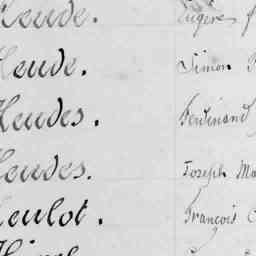 Heude. Eugène f
Heude. Simon
Heudes. Ferdinand
Heudes. Joseph Ma
Heulot. François C